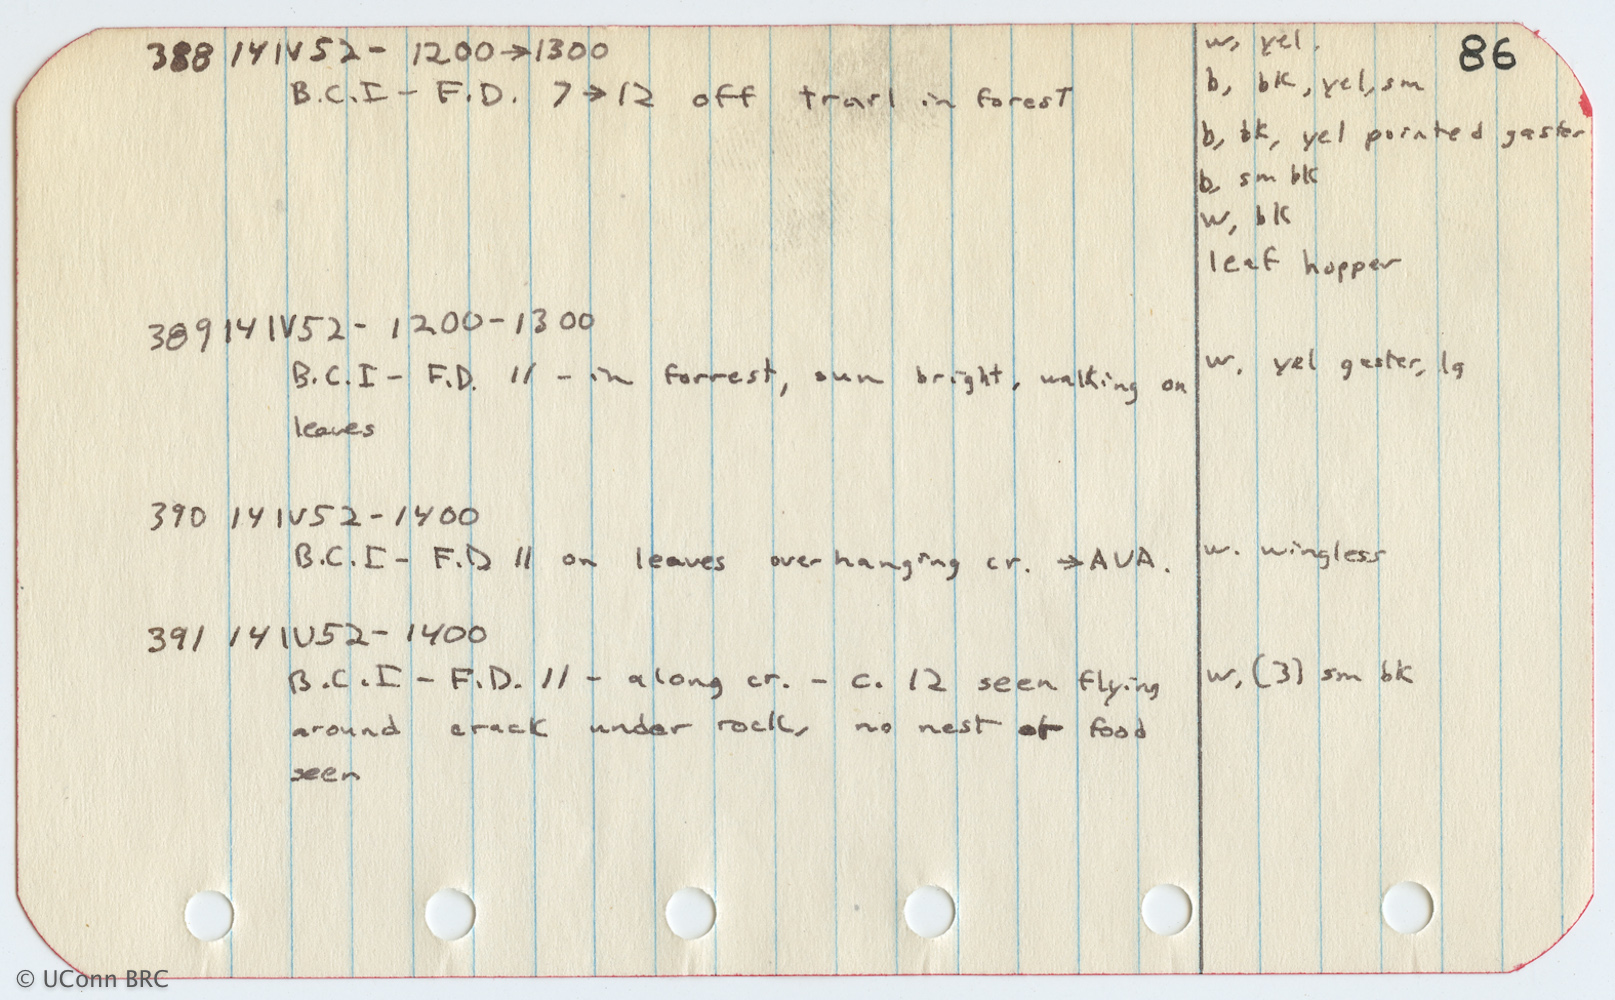 86
388 14IV52- 1200→1300
B.C.I - F.D. 7→12 off trail in forest
w, yel.
b, bk, yel, sm
b, bk, yel pointed gaster
b, sm bk
w, bk
leaf hopper
389 14IV52- 1200-1300
B.C.I - F.D. 11 - in forrest, sun bright, walking on
leaves
w, yel gaster, lg
390 14IV52-1400
B.C.I- F.D 11 on leaves overhanging cr. →AVA.
w. wingless
391 14IV52- 1400
B.C.I - F.D. 11 - along cr. - c. 12 seen flying
around crack under rock, no nest or food
seen
w, (3) sm bk
© UConn BRC